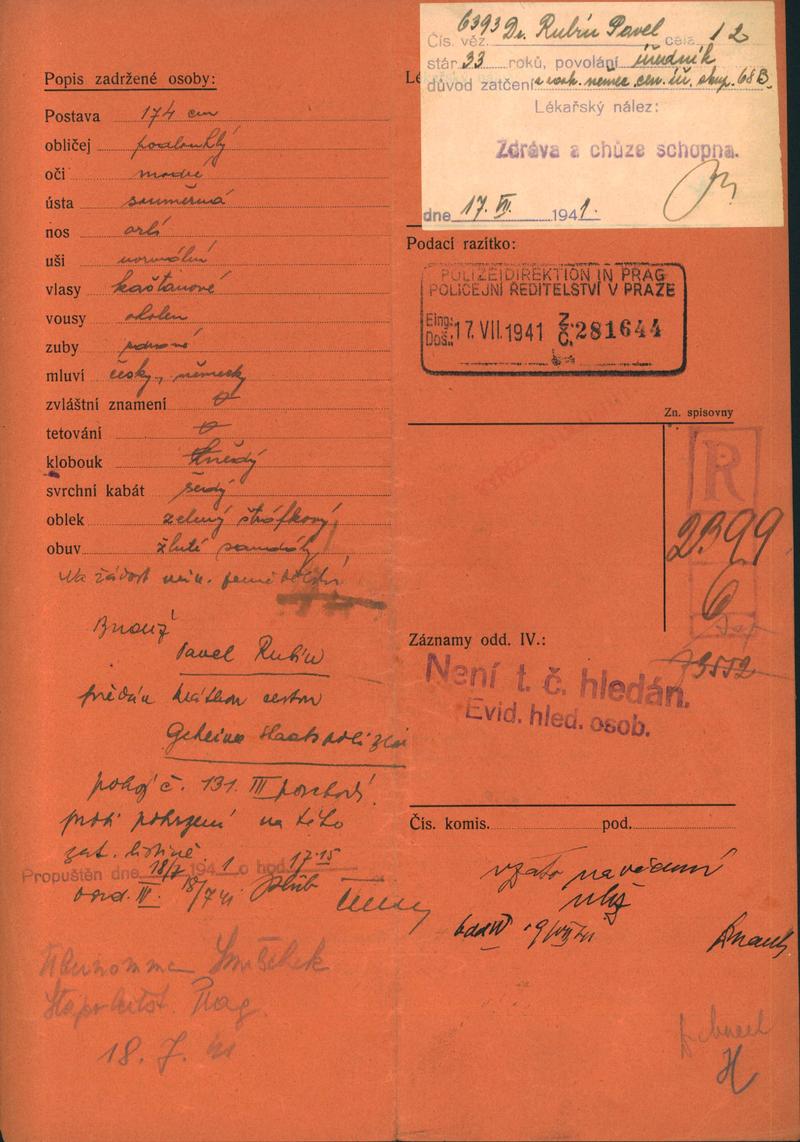 Popis zadržené osoby:
Postava 174 cm
obličej podlouhlý
oči modré
ústa souměrná
nos orlí
uši normální
vlasy kaštanové
vousy oholen
zuby zdravé
mluví česky, německy
zvláštní znamení
tetování
klobouk hnědý
svrchní kabát šedý
oblek zelený štráfkový
obuv žluté sandály
Na žádost min. zemědělství
Pavel Rubín
předán krátkou cestou
Geheime Staatspolizei
pokoj č. 131. III poschodí.
proti potvrzení na této
zat. listině.
Propuštěn dne 18/7 1941 o hod. 17.15
odd. III. 18/7 41
Prag
18. 7. 41
6393 Dr. Rubín Pavel
Čís. věz. cela 12
stár 33 roků, povolání úředník
důvod zatčení
Lékařský nález:
Zdráva a chůze schopna.
dne 17. VII. 1941.
Podací razítko:
POLIZEIDIREKTION IN PRAG
POLICEJNÍ ŘEDITELSTVÍ V PRAZE
Eing.: Doš.: 17. VII. 1941 Z. Č. 281644
Zn. spisovny
R
2399
6
Záznamy odd. IV.:
Není t. č. hledán.
Evid. hled. osob.
Čís. komis. pod.
vzato na vědomí